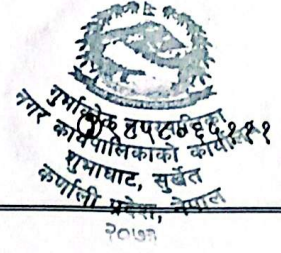 गुर्भाकोट नगरपालिका
नगर कार्यपालिकाको कार्यालय
शुभाघाट, सुर्खेत
कर्णाली प्रदेश, नेपाल
२०७३